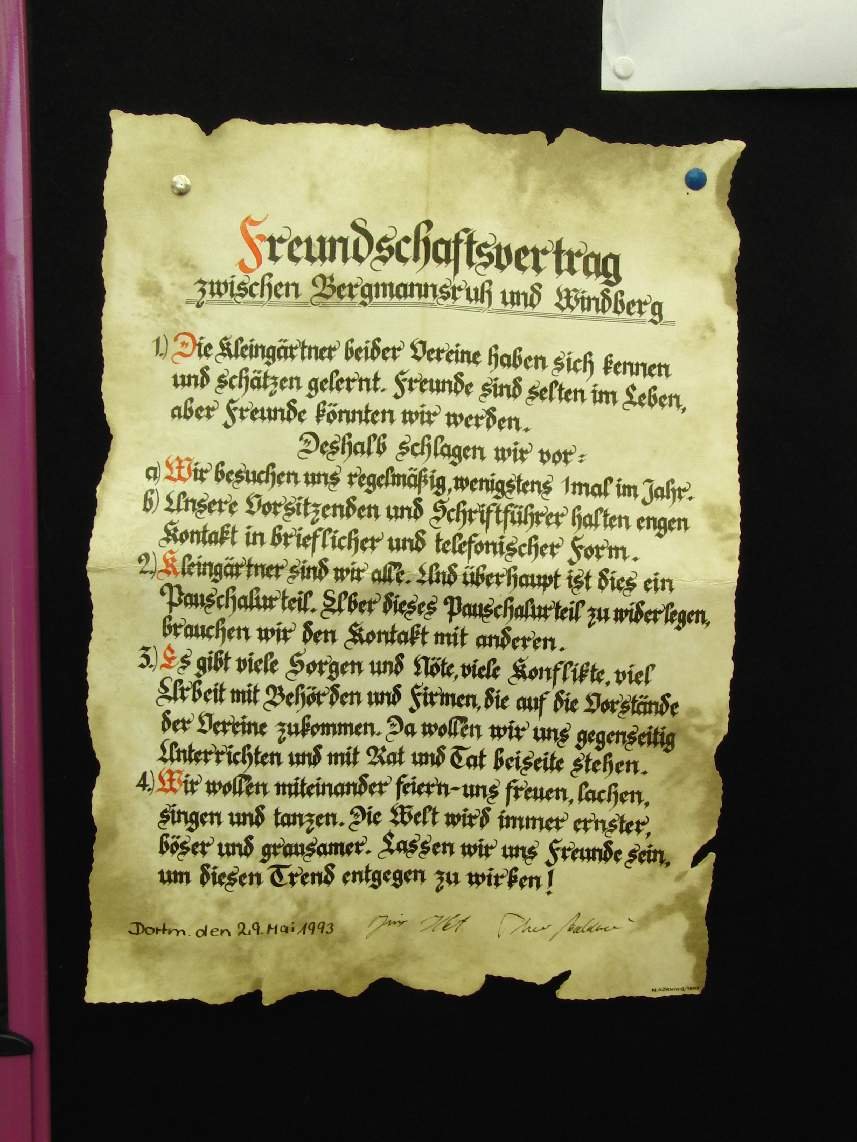 Freundschaftsvertrag
zwischen Bergmannsruh und Windberg
1.) Die Kleingärtner beider Vereine haben sich kennen
und schätzen gelernt. Freunde sind selten im Leben,
aber Freunde könnten wir werden.
Deshalb schlagen wir vor:
a) Wir besuchen uns regelmäßig, wenigstens 1mal im Jahr.
b) Unsere Vorsitzenden und Schriftführer halten engen
Kontakt in brieflicher und telefonischer Form.
2.) Kleingärtner sind wir alle. Und überhaupt ist dies ein
Pauschalurteil. Aber dieses Pauschalurteil zu widerlegen,
brauchen wir den Kontakt mit anderen.
3.) Es gibt viele Sorgen und Nöte, viele Konflikte, viel
Arbeit mit Behörden und Firmen, die auf die Vorstände
der Vereine zukommen. Da wollen wir uns gegenseitig
Unterrichten und mit Rat und Tat beiseite stehen.
4.) Wir wollen miteinander feiern - uns freuen, lachen,
singen und tanzen. Die Welt wird immer ernster,
böser und grausamer. Lassen wir uns Freunde sein,
um diesen Trend entgegen zu wirken!
Dortm. den 29. Mai 1993